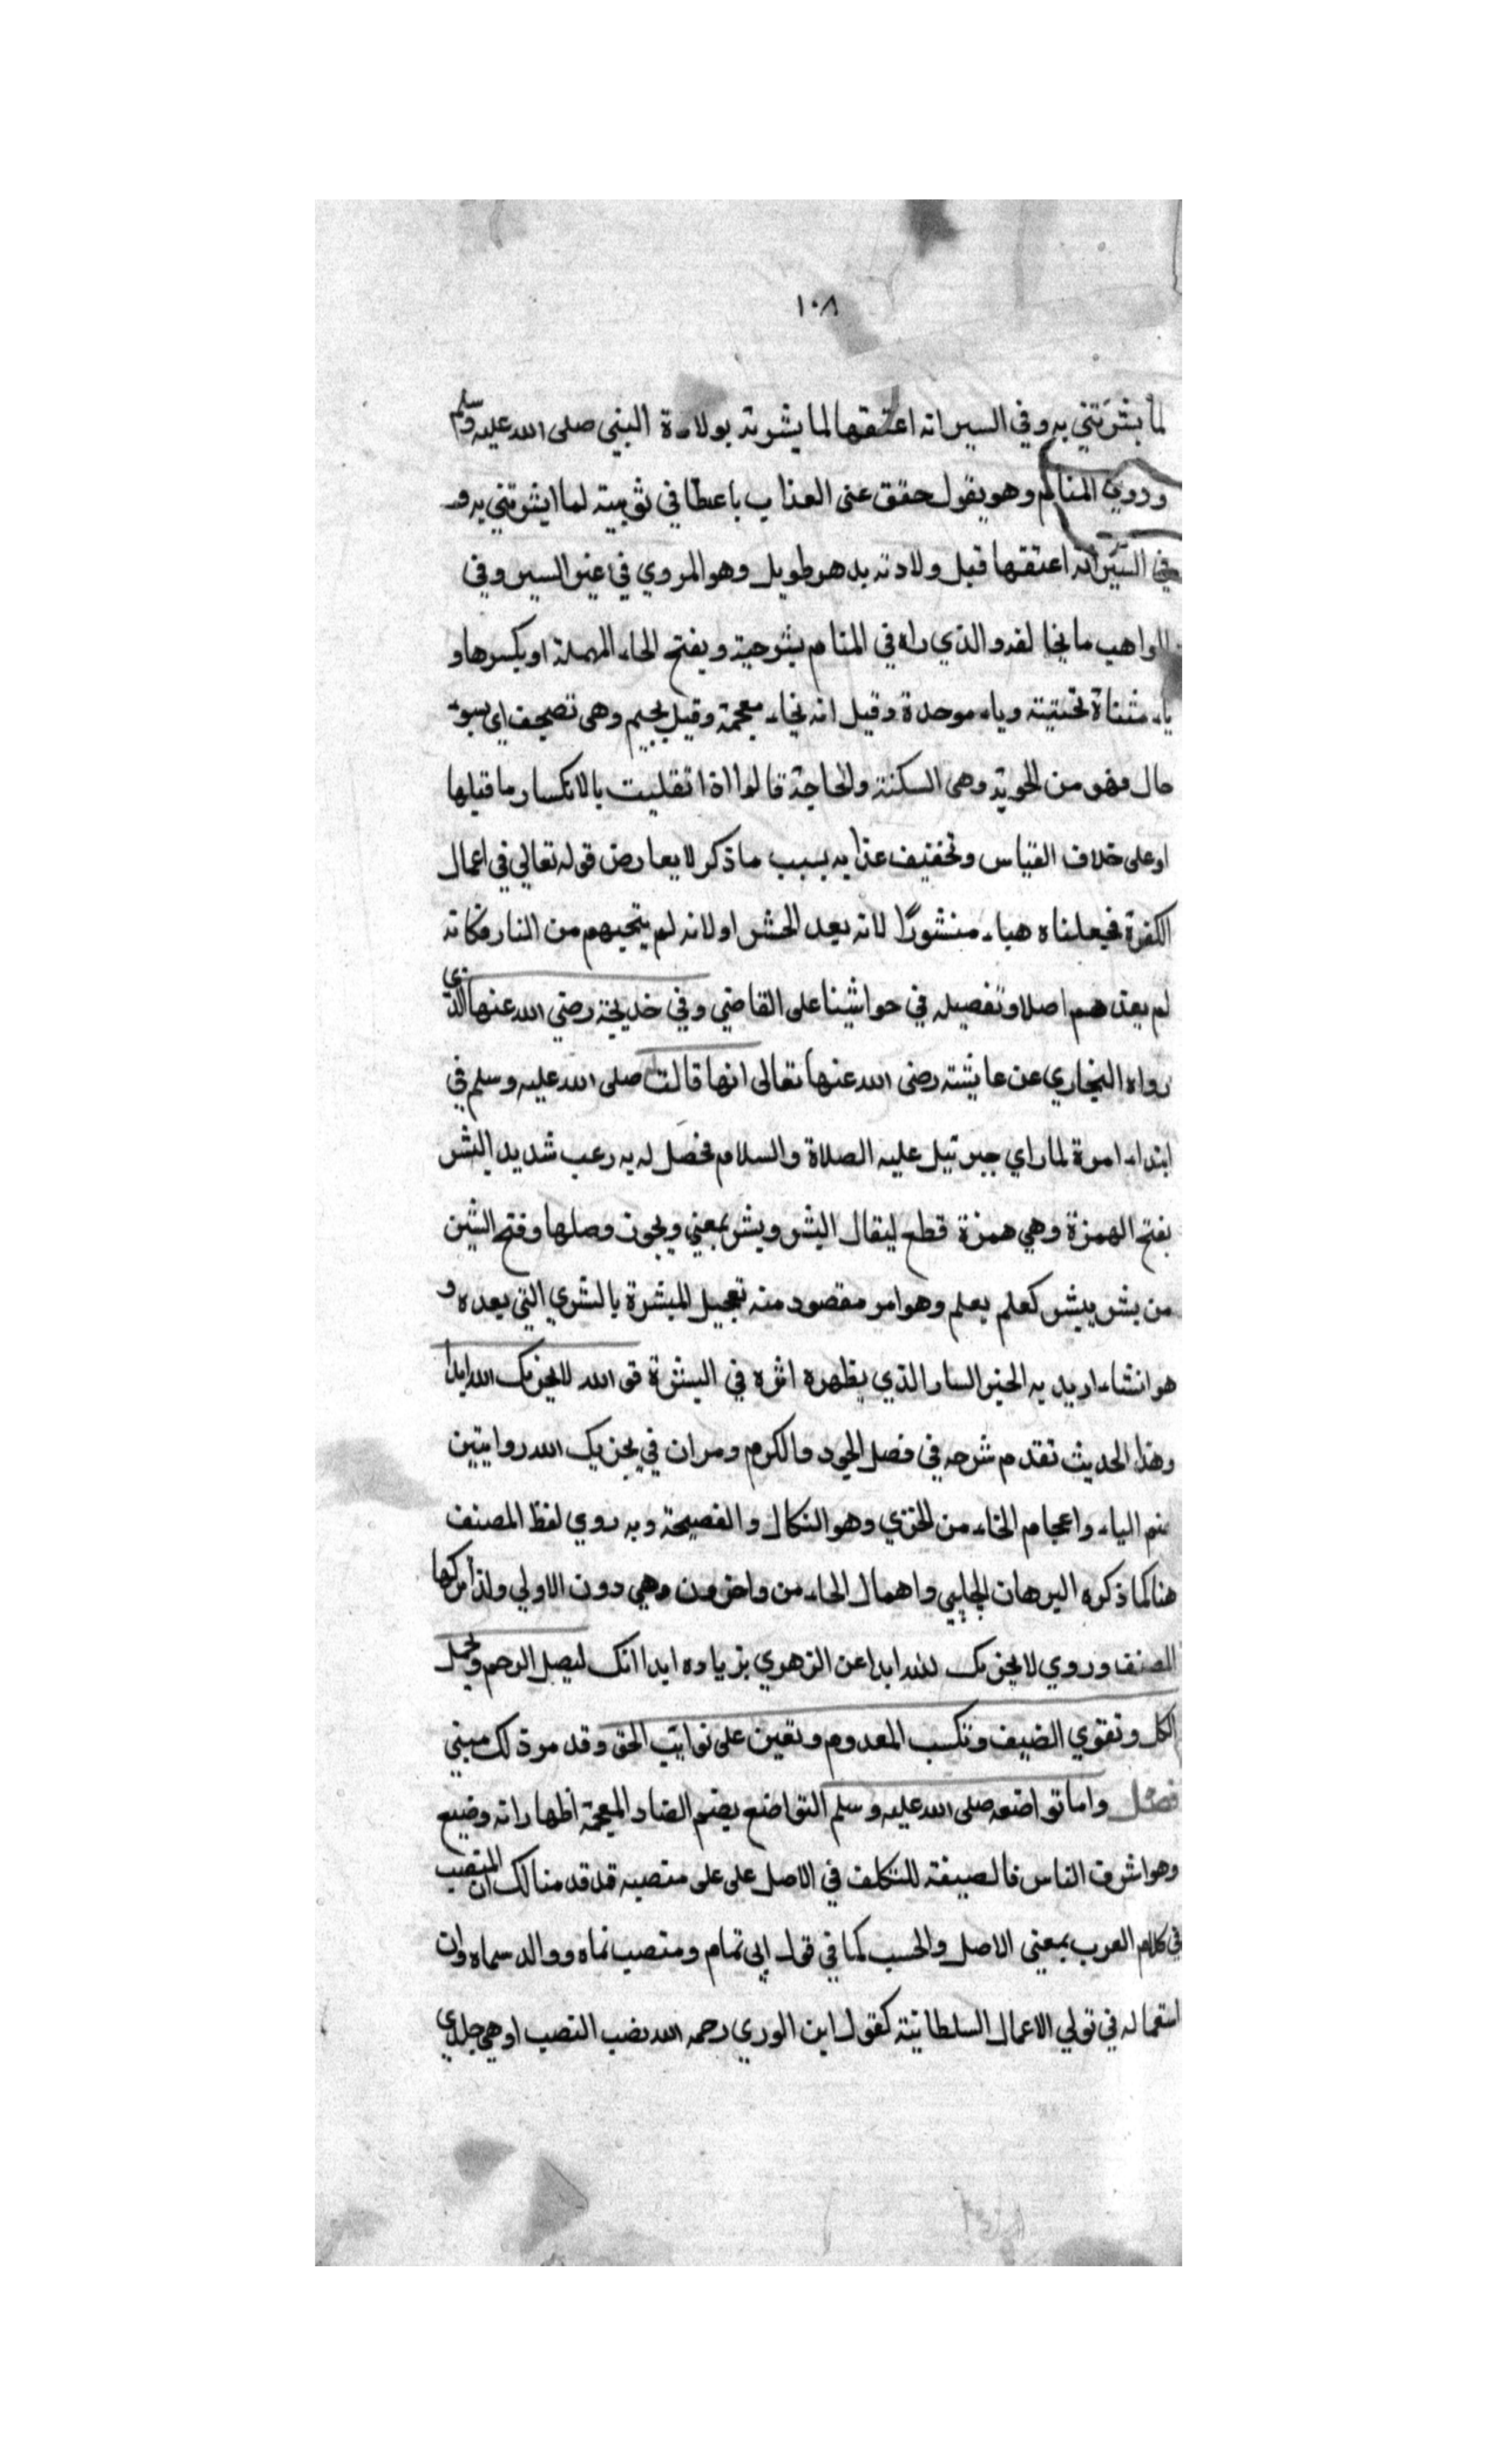 ١٠٨
لما بشرتني به وفي السير انه اعتقها لما بشرته بولادة النبي صلى الله عليه وسلم
وروي المنام وهو يقول خفف عني العذاب باعطافي ثويبة لما ابشرتني به و
في السير انه اعتقها قبل ولادته بدهر طويل وهو المروي في غير السير وفي
المواهب ما يخالفه والذي راه في المنام بشرحيبة وبفتح الحاء المهملة او بكسرها و
ياء مثناة تحتية وباء موحدة وقيل انه بخاء معجمة وقيل بجيم وهي تصحيف اي بسوء
حال وهو من الحوبة وهي السكنة والحاجة قالوا اذا انقلبت بالانكسار ما قبلها
او على خلاف القياس وتخفيف عذابه بسبب ما ذكر لا يعارض قوله تعالي في اعمال
الكفرة فجعلناه هباء منثورًا لانه بعد الحشر او لانه لم ينجيهم من النار فكانه
لم يعدهم اصلا وتفصيله في حواشينا على القاضي وفي خديجة رضي الله عنها الذي
رواه البخاري عن عايشة رضى الله عنها تعالى انها قالت صلى الله عليه وسلم في
ابتداء امرة لما راي جبرئيل عليه الصلاة والسلام فحصل له به رعب شديد البشر
بفتح الهمزة وهي همزة قطع ليقال ابشر وبشر بمعني ويجوز وصلها وفتح الشين
من بشر يبشر كعلم يعلم وهو امر مقصود منه تعجيل المبشرة بالبشري التي بعده و
هو انشاء اريد به الخبر السار الذي يظهره اثره في البشرة فو الله لا يحزنك الله ابدا
وهذا الحديث تقدم شرحه في فصل الجود والكرم ومر ان في يحزنك الله روايتين
بضم الياء واعجام الخاء من الخزي وهو النكال والفضيحة وبه روي لفظ المصنف
هنا كما ذكره البرهان الحلبي واهمال الحاء من واحزون وهي دون الاولي ولذا تركها
المصنف وروي لا يحزنك الله ابدا عن الزهري بزياده ابدا انك ليصل الرحم وتحمل
الكل وتقوي الضيف وتكسب المعدوم وتعين على نوايب الحق وقد مر ذلك مبني
فصل واما تواضعه صلى الله عليه وسلم التواضع بضم الضاد المعجمة اظهار انه وضيع
وهو اشرف الناس فالصيغة للتكلف في الاصل على على منصبه قد قدمنا لك ان المنصب
في كلام العرب بمعنى الاصل والحسب كما في قول ابي تمام ومنصب نماه ووالد سماه وان
استعماله في تولي الاعمال السلطانية كقول ابن الوردي رحمه الله نصب النصب اوهي جلدي